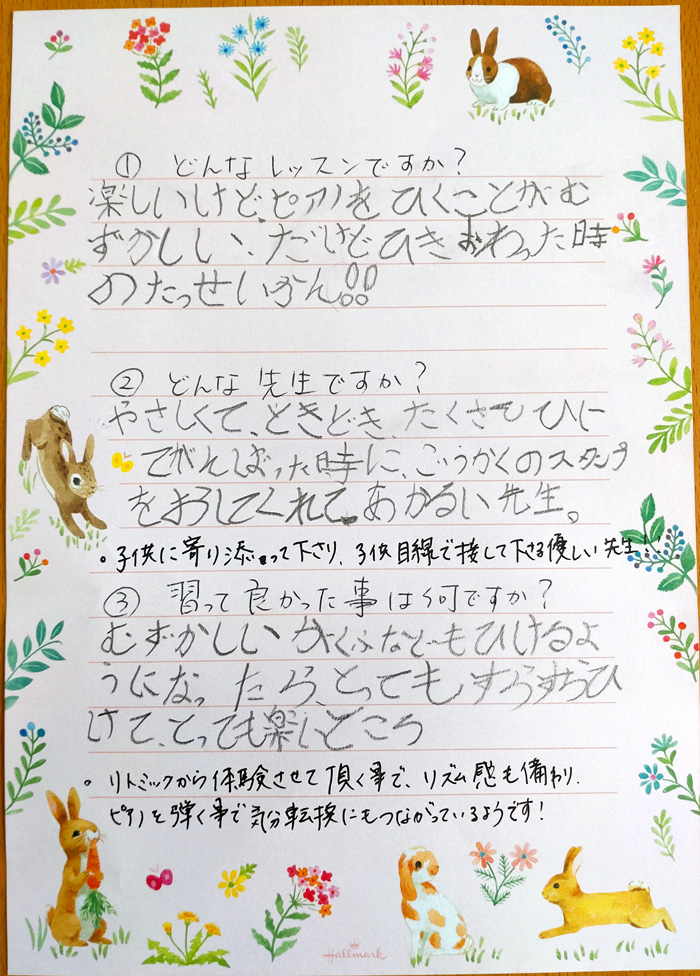 ① どんなレッスンですか?
楽しいけど、ピアノをひくことがむ
ずかしい、だけどひきおわった時
のたっせいかん!!
② どんな先生ですか?
やさしくて、ときどき、たくさん ひに
てがんばった時に、ごうかくのスタンプ
をおしてくれて、あかるい先生。
・子供に寄り添って下さり、子供目線で接して下さる優しい先生!
③ 習って良かった事は何ですか?
むずかしい がくふなどもひけるよ
うになったら、とってもすらすらひ
けて、とっても楽しいところ
・リトミックから体験させて頂く事で、リズム感も備わり、
ピアノを弾く事で気分転換にもつながっているようです!
Hallmark